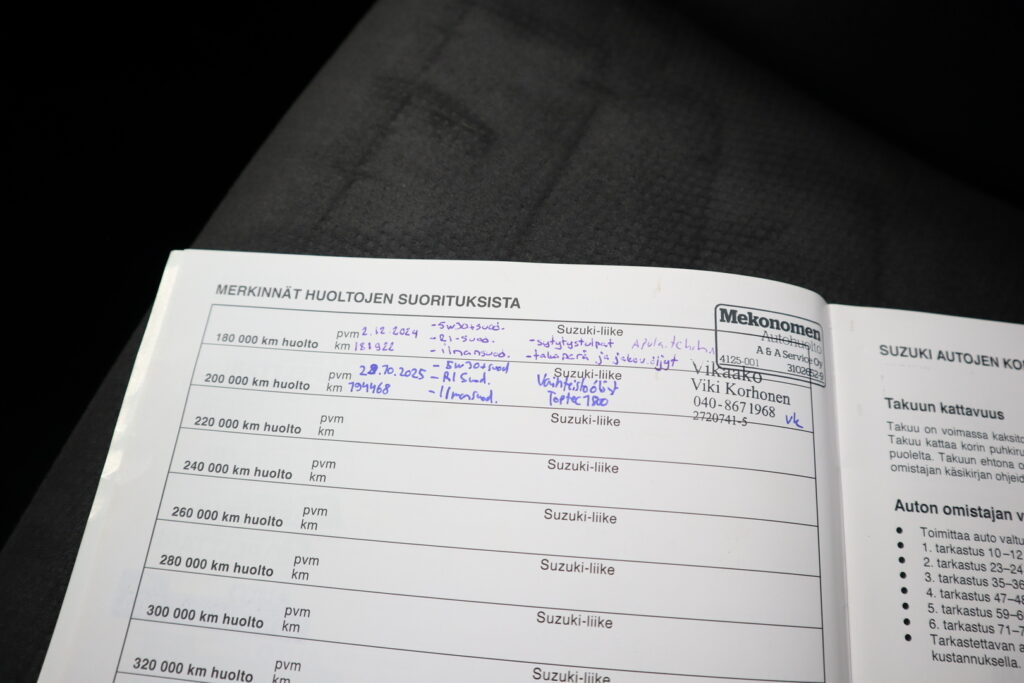 MERKINNÄT HUOLTOJEN SUORITUKSISTA
180 000 km huolto
pvm 2.12.2024
km 181922
-5w30+suod.
- RI-suod.
- ilmansuod.
Suzuki-liike
-sytytystulpat
-takaperä ja
Mekonomen
Autohuolto
A & A Service Oy
4125-001
200 000 km huolto
pvm 28.10.2025
km 194468
- 5w30+suod
- RI Suod.
- Ilmansuod.
Suzuki-liike
Vaihteistoöljyt
Toptec 1800
Vikaako
Viki Korhonen
040-8671968
2720741-5
vk
220 000 km huolto
pvm
km
Suzuki-liike
240 000 km huolto
pvm
km
Suzuki-liike
260 000 km huolto
pvm
km
Suzuki-liike
280 000 km huolto
pvm
km
Suzuki-liike
300 000 km huolto
pvm
km
Suzuki-liike
320 000 km huolto
pvm
km
Suzuki-liike
SUZUKI AUTOJEN
Takuun kattavuus
Takuu on voimassa
Takuu kattaa korin
puolelta. Takuun ehtona
omistajan käsikirjan
Auton omistajan
• Toimittaa auto
• 1. tarkastus 10–12
• 2. tarkastus 23–24
• 3. tarkastus
• 4. tarkastus
• 5. tarkastus
• 6. tarkastus
• Tarkastettavan
kustannuksella.